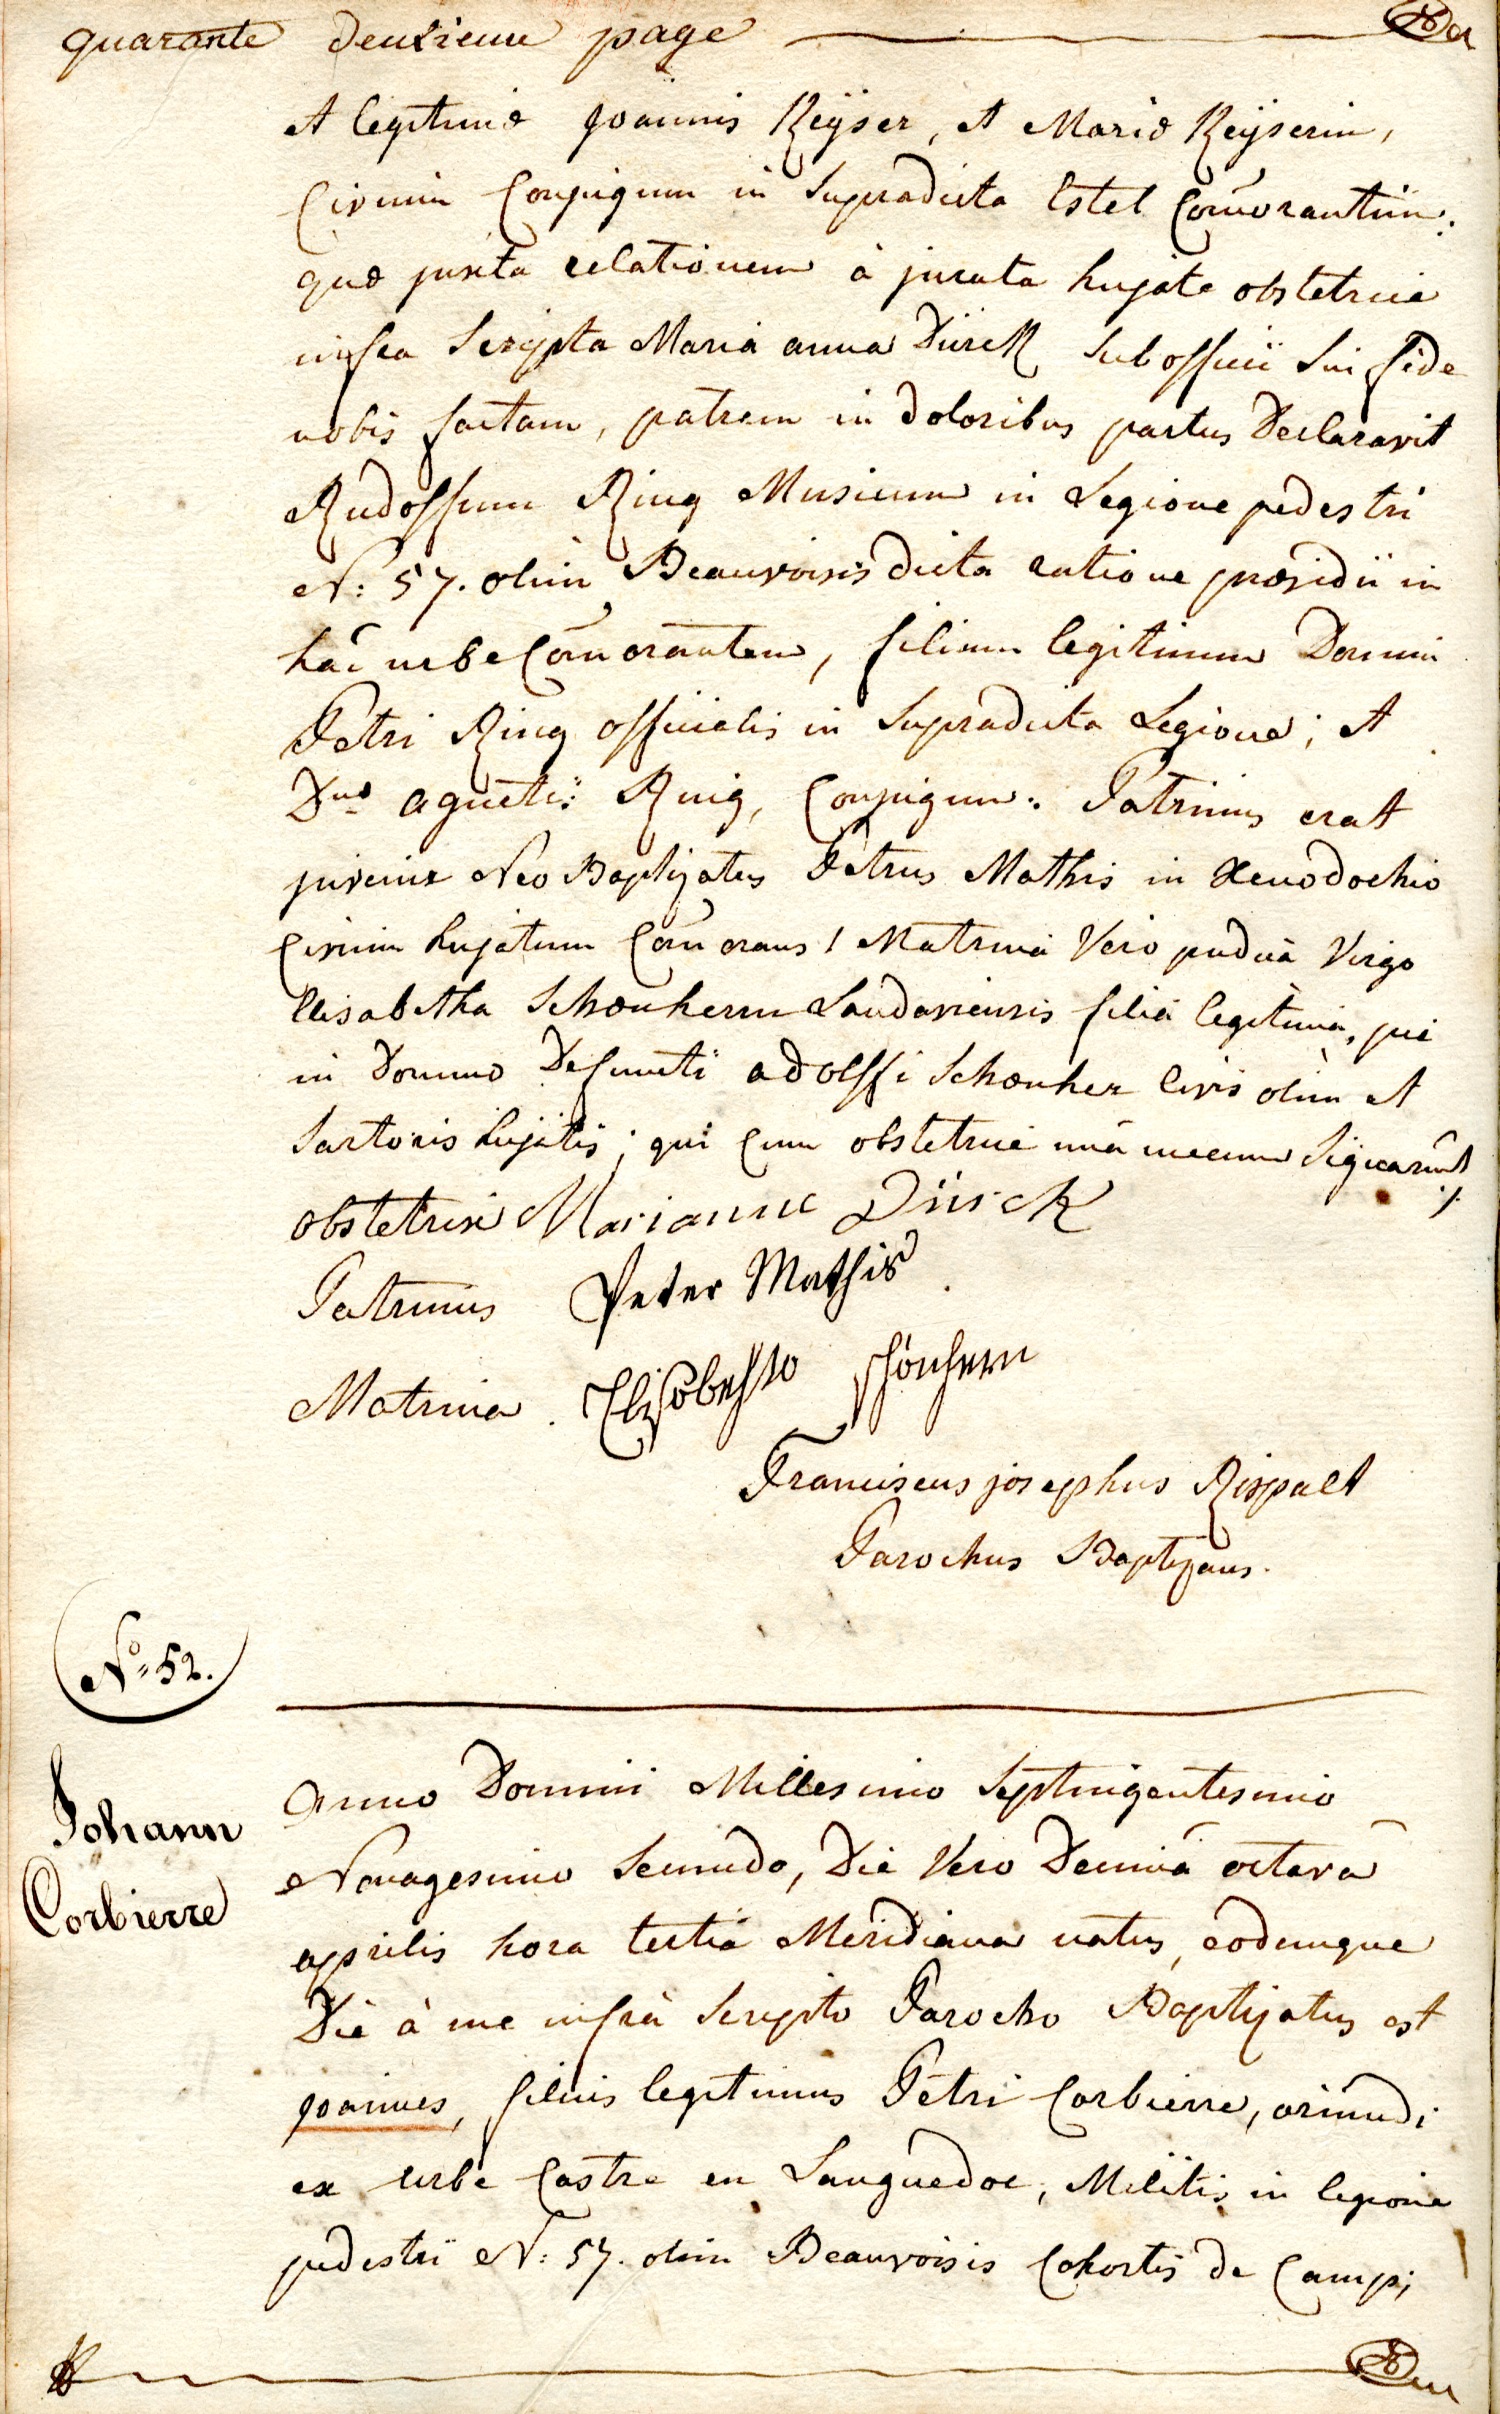 quarante deuxieme page
et legitimæ Joannis Keÿser, et Mariæ Keÿserin,
Civium Conjugum in supradicta Estel Com̄orantium:
quæ juxta relationem à jurata hujate obstetrice
infra scripta Maria anna Dürck sub officii sui fide
nobis factam, patrem in doloribus partus Declaravit
Rudolffum Ring Musicum in Legione pedestri
N: 57. olim Beauvoisis dicta ratione præsidii in
hâc urbe Com̄orantem, filium legitimum Domini
Petri Ring officialis in supradicta Legione; et
Dnæ agnetis Ring, Conjugum: Patrinus erat
juvenis Neo Baptizatus Petrus Mathis in Xenodochio
Civium hujatum Com̄orans! Matrina Vero pudica Virgo
Elisabetha Schœnherrin Landaviensis filia legitima, piè
in Domino Defuncti adolffi Schœnher Civis olim et
Sartoris hujatis; qui cum obstetrice unà mecum Signarunt ./.
obstetrix Marianne Dürck
Patrinus Peter Mathis
Matrina . Elisabetha schönherrin
Franciscus josephus Rispalt
Parochus Baptizans.
No= 52.
Johann
Corbierre
Anno Domini Millesimo Septingentesimo
Nonagesimo Secundo, Die Vero Decimâ octavâ
aprilis hora tertiâ Meridiana natus, eodemque
Die à me infrà Scripto Parocho Baptizatus est
Joannes, filius legitimus Petri Corbierre, oriundi
ex urbe Castre en Languedoc, Militis in legione
pedestri N: 57. olim Beauvoisis Cohortis de Campi